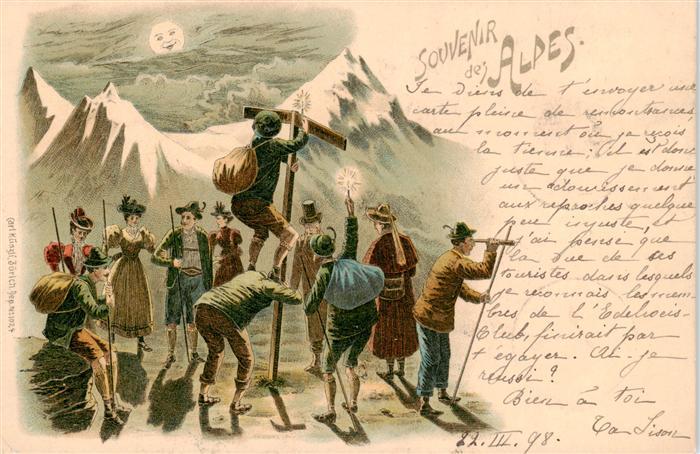 SOUVENIR
des ALPES.
Je viens de t'envoyer une
carte pleine de remontrances
au moment où je reçois
la tienne; il est donc
juste que je donne
un adoucissement
aux reproches quelque
peu injuste, et
j'ai pensé que
la vue de ces
touristes dans lesquels
je reconnais les mem-
bres de l'Edelweis-
Club, finirait par
t'égayer. Ai-je
réussi?
Bien à toi
Ta Lison
22. III. 98.
Carl Künzli, Zürich, Dep. No. 1024